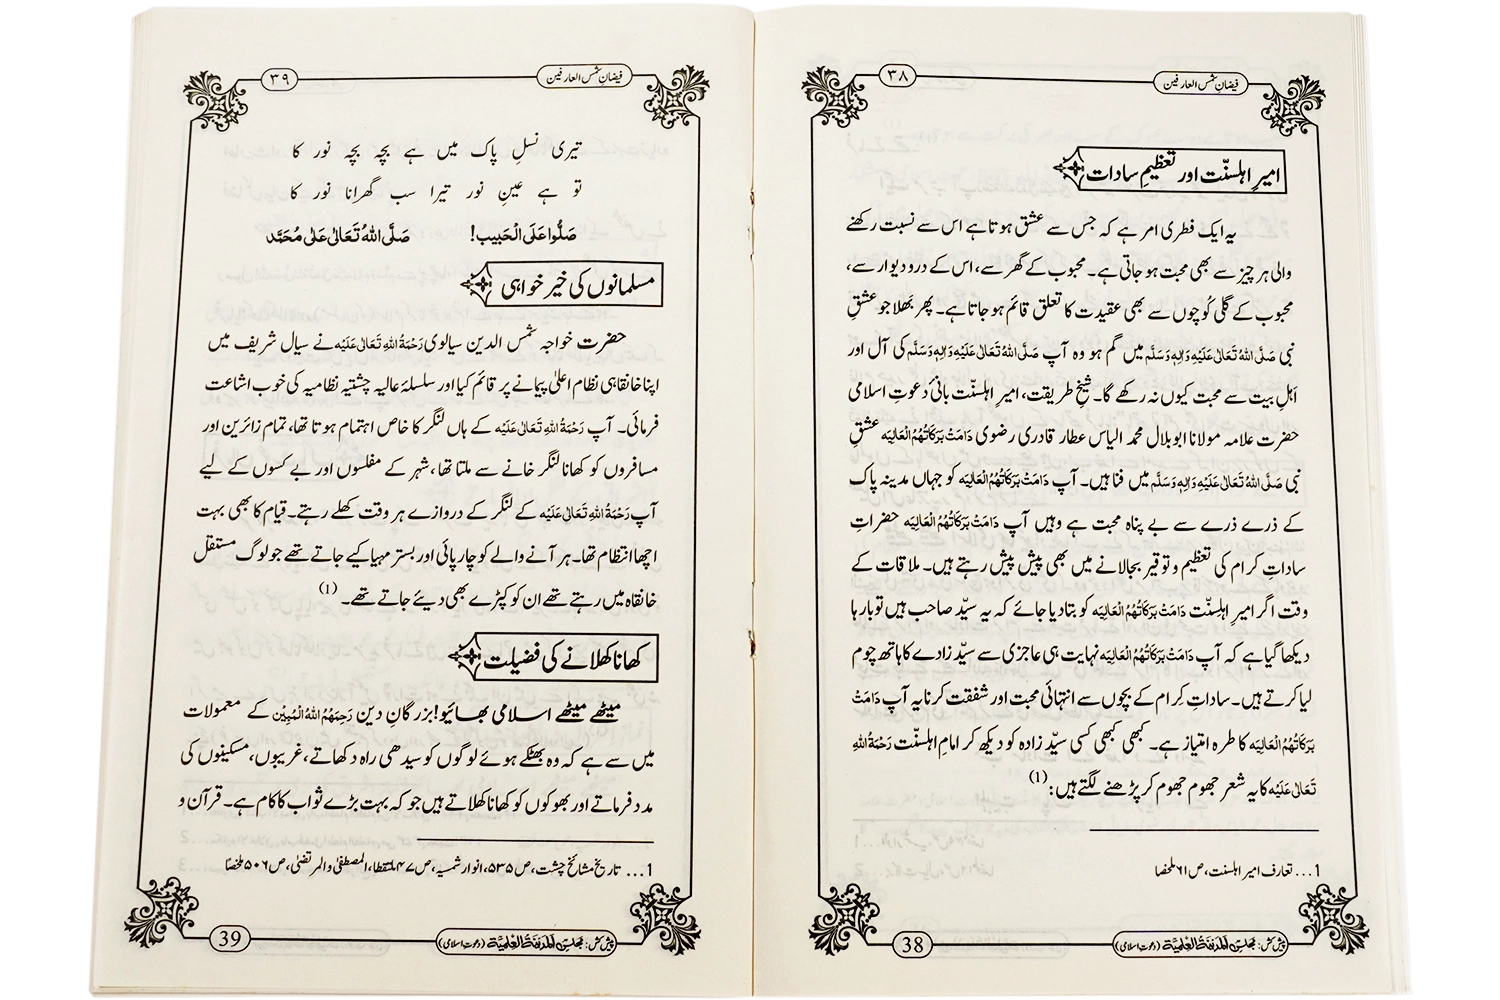 ۳۸
فیضانِ شمس العارفین
امیرِ اہلسنّت اور تعظیمِ سادات
یہ ایک فطری امر ہے کہ جس سے عشق ہوتا ہے اس سے نسبت رکھنے
والی ہر چیز سے بھی محبت ہو جاتی ہے۔ محبوب کے گھر سے، اس کے در و دیوار سے،
محبوب کے گلی کُوچوں سے بھی عقیدت کا تعلق قائم ہو جاتا ہے۔ پھر بَھلا جو عشقِ
نبی صَلَّی اللہُ تَعَالٰی عَلَیْہِ وَاٰلِہٖ وَسَلَّم میں گم ہو وہ آپ صَلَّی اللہُ تَعَالٰی عَلَیْہِ وَاٰلِہٖ وَسَلَّم کی آل اور
اَہلِ بیت سے محبت کیوں نہ رکھے گا۔ شیخِ طریقت، امیرِ اہلسنّت بانیٔ دعوتِ اسلامی
حضرت علامہ مولانا ابوبلال محمد الیاس عطار قادری رضوی دَامَتْ بَرَکَاتُہُمُ الْعَالِیَہ عشقِ
نبی صَلَّی اللہُ تَعَالٰی عَلَیْہِ وَاٰلِہٖ وَسَلَّم میں فنا ہیں۔ آپ دَامَتْ بَرَکَاتُہُمُ الْعَالِیَہ کو جہاں مدینہ پاک
کے ذرے ذرے سے بے پناہ محبت ہے وہیں آپ دَامَتْ بَرَکَاتُہُمُ الْعَالِیَہ حضراتِ
ساداتِ کرام کی تعظیم و توقیر بجالانے میں بھی پیش پیش رہتے ہیں۔ ملاقات کے
وقت اگر امیرِ اہلسنّت دَامَتْ بَرَکَاتُہُمُ الْعَالِیَہ کو بتادیا جائے کہ یہ سیّد صاحب ہیں تو بارہا
دیکھا گیا ہے کہ آپ دَامَتْ بَرَکَاتُہُمُ الْعَالِیَہ نہایت ہی عاجزی سے سیّد زادے کا ہاتھ چوم
لیا کرتے ہیں۔ ساداتِ کِرام کے بچوں سے انتہائی محبت اور شفقت کرنا یہ آپ دَامَتْ
بَرَکَاتُہُمُ الْعَالِیَہ کا طرہ امتیاز ہے۔ کبھی کبھی کسی سیّد زادہ کو دیکھ کر امامِ اہلسنّت رَحْمَۃُ اللہِ
تَعَالٰی عَلَیْہ کا یہ شعر جھوم جھوم کر پڑھنے لگتے ہیں: (1)
1… تعارف امیر اہلسنت، ص ۶۱ ملخصا
پیش کش: مجلس اَلْمَدِیْنَۃُ الْعِلْمِیَّۃ (دعوتِ اسلامی)
38
۳۹
فیضانِ شمس العارفین
تیری نسلِ پاک میں ہے بچہ بچہ نور کا
تو ہے عینِ نور تیرا سب گھرانا نور کا
صَلُّوا عَلَی الْحَبِیب! صَلَّی اللہُ تَعَالٰی عَلٰی مُحَمَّد
مسلمانوں کی خیر خواہی
حضرت خواجہ شمس الدین سیالوی رَحْمَۃُ اللہِ تَعَالٰی عَلَیْہ نے سیال شریف میں
اپنا خانقاہی نظام اعلیٰ پیمانے پر قائم کیا اور سلسلۂ عالیہ چشتیہ نظامیہ کی خوب اشاعت
فرمائی۔ آپ رَحْمَۃُ اللہِ تَعَالٰی عَلَیْہ کے ہاں لنگر کا خاص اہتمام ہوتا تھا، تمام زائرین اور
مسافروں کو کھانا لنگر خانے سے ملتا تھا، شہر کے مفلسوں اور بے کسوں کے لیے
آپ رَحْمَۃُ اللہِ تَعَالٰی عَلَیْہ کے لنگر کے دروازے ہر وقت کھلے رہتے۔ قیام کا بھی بہت
اچھا انتظام تھا۔ ہر آنے والے کو چارپائی اور بستر مہیا کیے جاتے تھے جو لوگ مستقل
خانقاہ میں رہتے تھے ان کو کپڑے بھی دیئے جاتے تھے۔ (1)
کھانا کھلانے کی فضیلت
میٹھے میٹھے اسلامی بھائیو! بزرگانِ دین رَحِمَہُمُ اللہُ الْمُبِیْن کے معمولات
میں سے ہے کہ وہ بھٹکے ہوئے لوگوں کو سیدھی راہ دکھاتے، غریبوں، مسکینوں کی
مدد فرماتے اور بھوکوں کو کھانا کھلاتے ہیں جو کہ بہت بڑے ثواب کا کام ہے۔ قرآن و
1… تاریخ مشائخ چشت، ص ۵۳۵، انوار شمسیہ، ص ۴۷ ملتقطا، المصطفیٰ والمرتضیٰ، ص ۵۰۶ ملخصاً
پیش کش: مجلس اَلْمَدِیْنَۃُ الْعِلْمِیَّۃ (دعوتِ اسلامی)
39